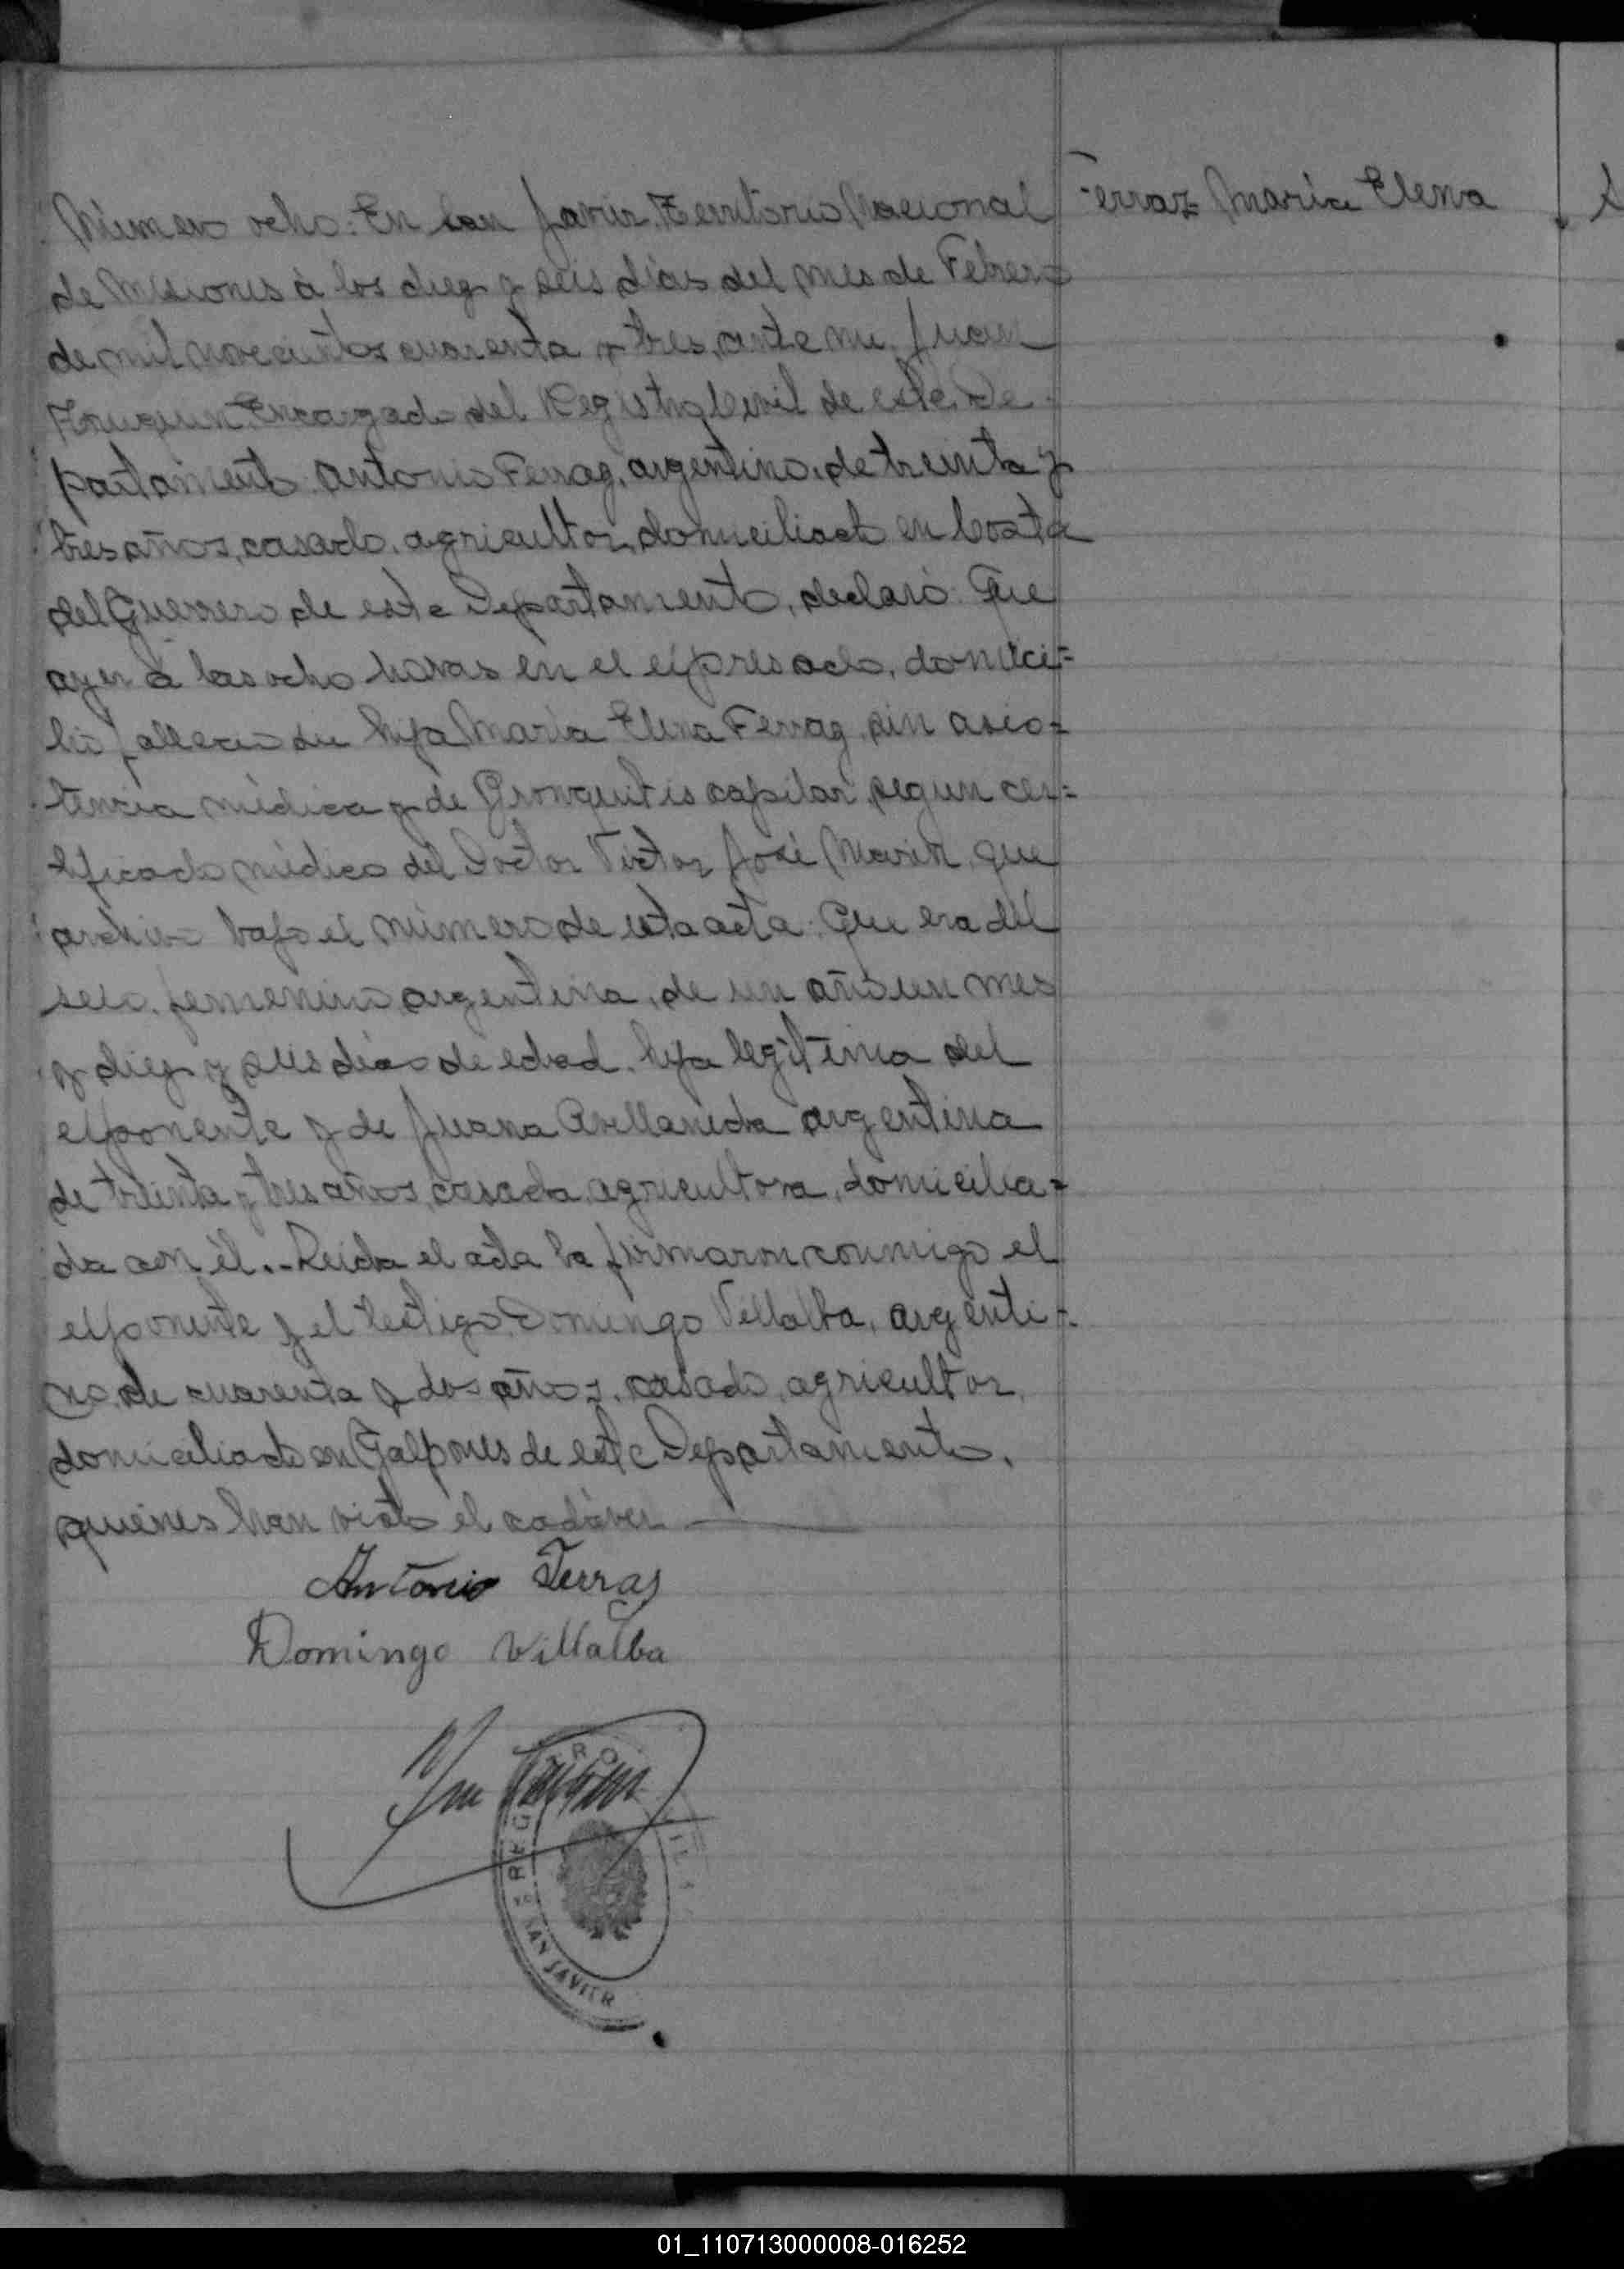 Ferraz María Elena
Número ocho: En San Javier, Territorio Nacional
de Misiones á los diez y seis días del mes de Febrero
de mil novecientos cuarenta y tres, ante mi, Juan
Encargado del Registro Civil de este De-
partamento: Antonio Ferraz, argentino, de treinta y
tres años, casado, agricultor, domiciliado en Costa
del Guerrero de este Departamento, declaró: Que
ayer á las ocho horas en el expresado, domici=
lio falleció su hija María Elena Ferraz, sin asis=
tencia médica y de Bronquitis capilar, segun cer=
tificado médico del Doctor Victor José Marin, que
archivo bajo el número de esta acta: Que era del
sexo, femenino, argentina, de un año un mes
y diez y seis días de edad, hija legítima del
exponente y de Juana Avellaneda argentina
de treinta y tres años, casada, agricultora, domicilia=
da con él.- Leida el acta la firmaron conmigo el
exponente y el testigo, Domingo Villalba, argenti=
no, de cuarenta y dos años, casado, agricultor,
domiciliado en Galpones de este Departamento,
quienes han visto el cadáver
Antonio Ferras
Domingo Villalba
SAN JAVIER
01_110713000008-016252